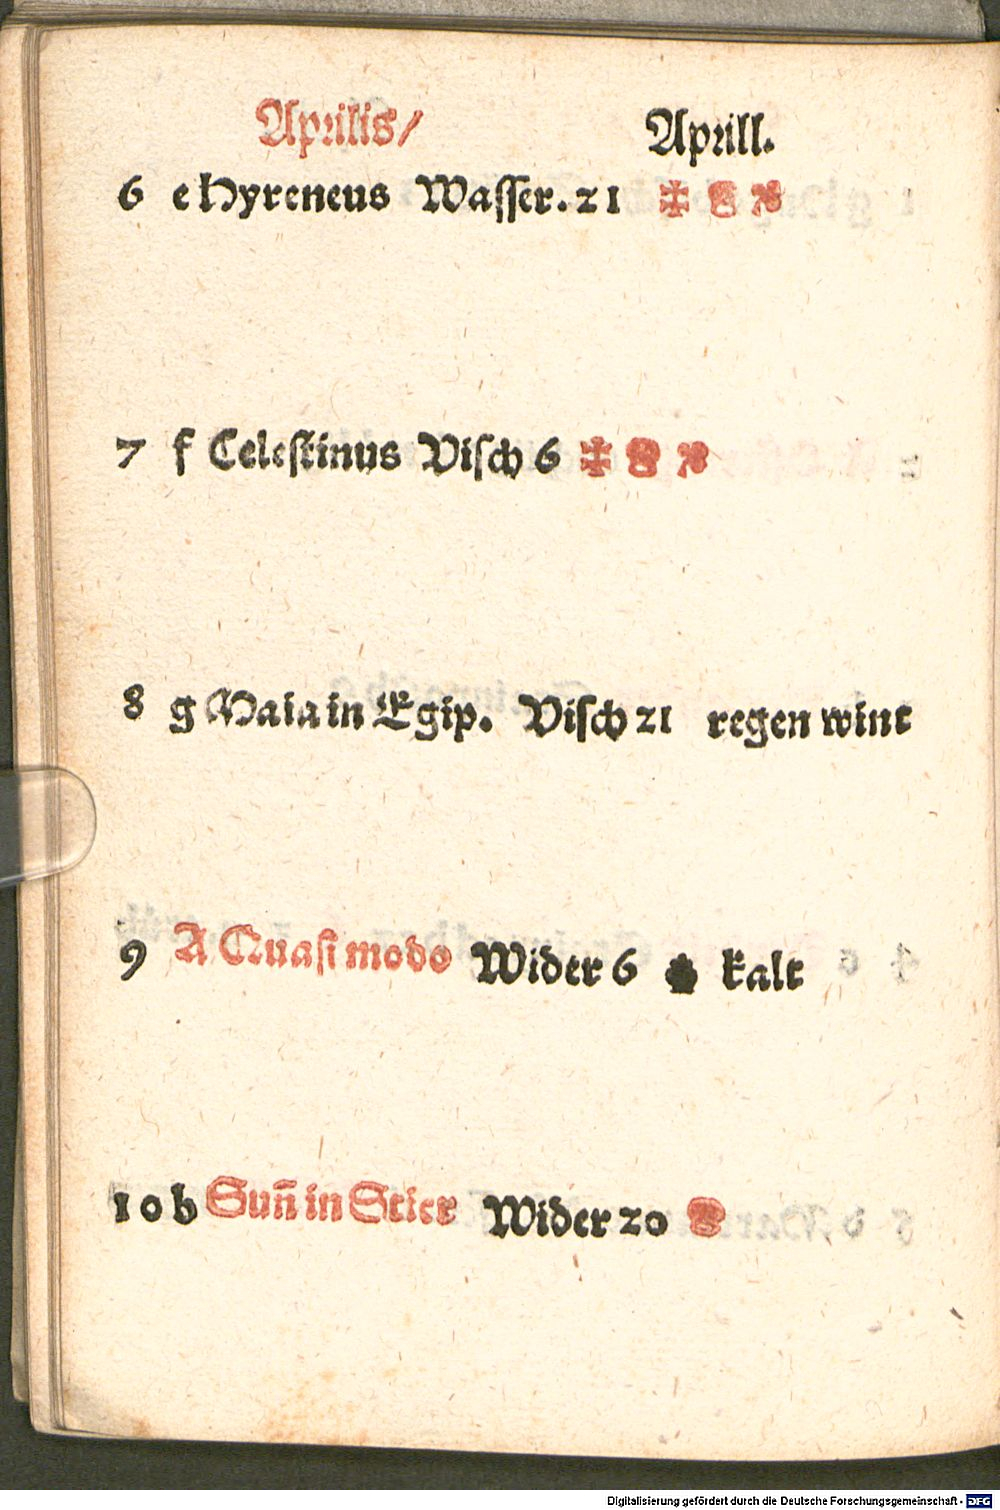 Aprilis/ Aprill.
6 e Hyreneus Wasser. 21
7 f Celestinus Visch 6
8 g Maia in Egip. Visch 21 regen wint
9 A Quasi modo Wider 6 kalt
10 b Suñ in Stier Wider 20
Digitalisierung gefördert durch die Deutsche Forschungsgemeinschaft - DFG